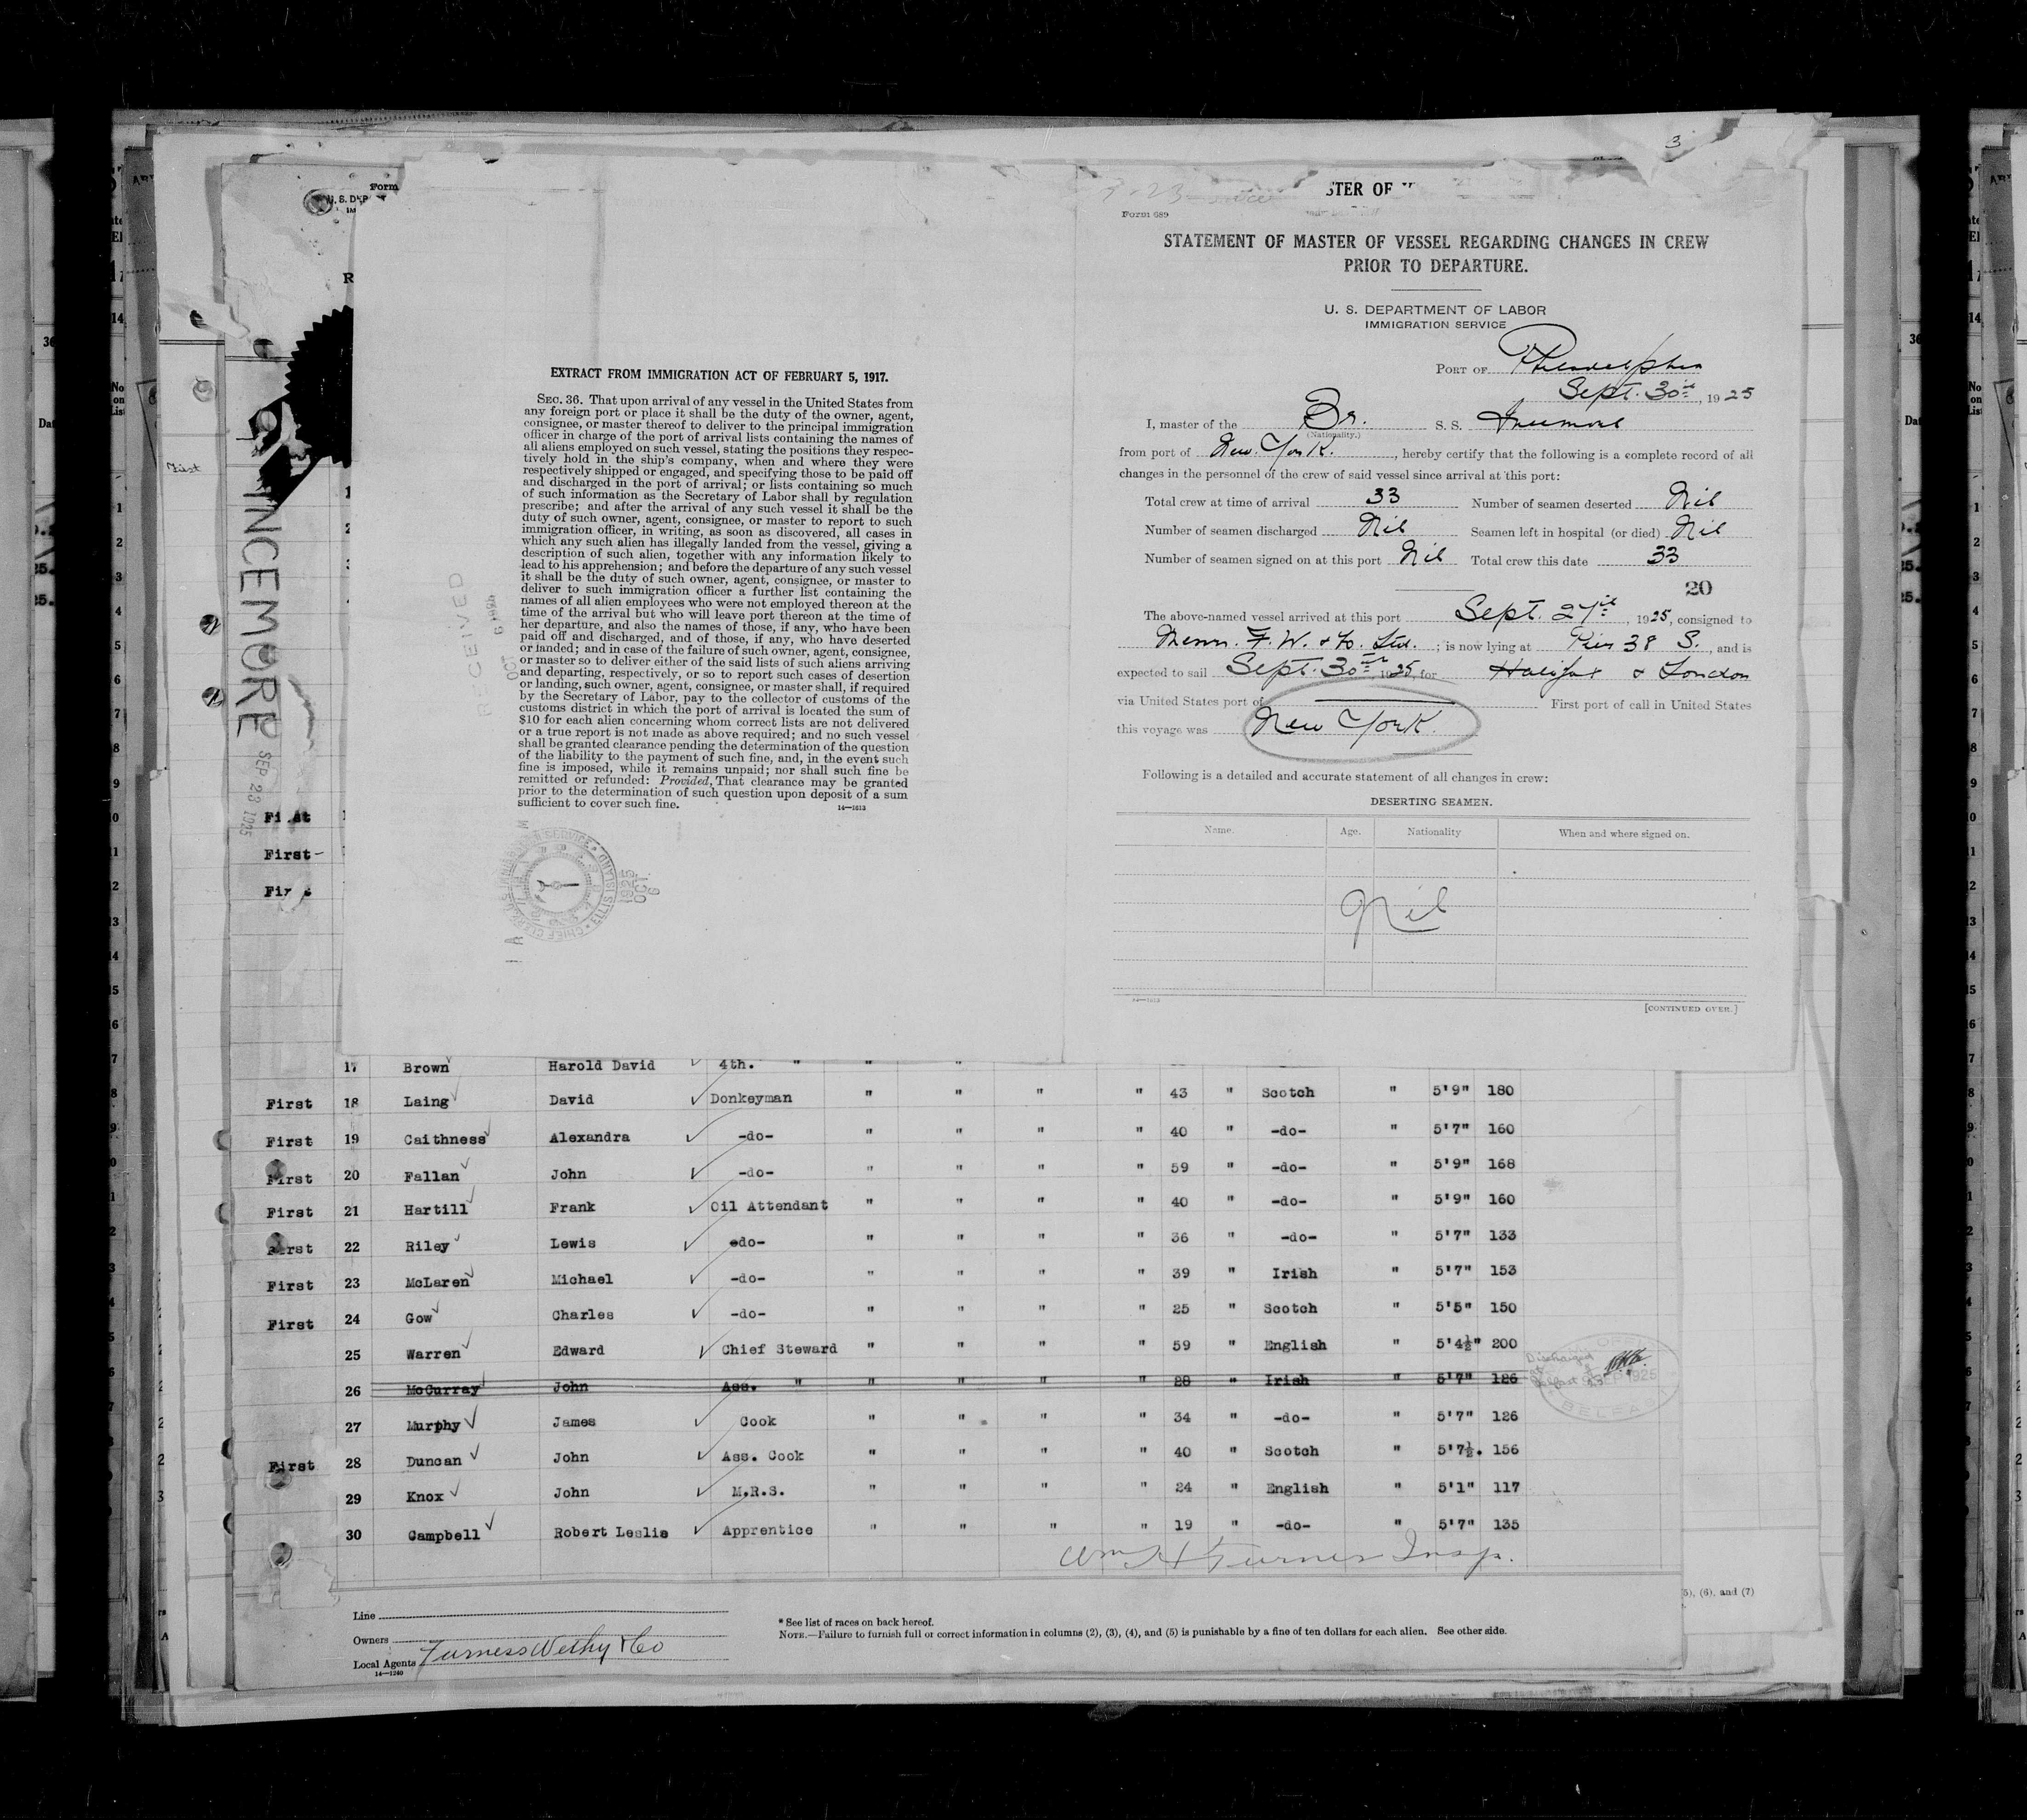 3
Form
U. S. DEP
STER OF
Form 689
STATEMENT OF MASTER OF VESSEL REGARDING CHANGES IN CREW
PRIOR TO DEPARTURE.
U. S. DEPARTMENT OF LABOR
IMMIGRATION SERVICE
PORT OF Philadelphia
Sept. 30th, 1925
I, master of the Br. S. S. Incemore
(Nationality.)
from port of New York., hereby certify that the following is a complete record of all
changes in the personnel of the crew of said vessel since arrival at this port:
Total crew at time of arrival 33 Number of seamen deserted Nil
Number of seamen discharged Nil Seamen left in hospital (or died) Nil
Number of seamen signed on at this port Nil Total crew this date 33
20
The above-named vessel arrived at this port Sept. 27th, 1925, consigned to
Messrs. F. W. & Co. Ltd.; is now lying at Pier 38 S., and is
expected to sail Sept. 30th, 1925, for Halifax & London
via United States port of First port of call in United States
this voyage was New York.
Following is a detailed and accurate statement of all changes in crew:
DESERTING SEAMEN.
Name. Age. Nationality When and where signed on.
Nil
14—1613
[CONTINUED OVER.]
EXTRACT FROM IMMIGRATION ACT OF FEBRUARY 5, 1917.
SEC. 36. That upon arrival of any vessel in the United States from
any foreign port or place it shall be the duty of the owner, agent,
consignee, or master thereof to deliver to the principal immigration
officer in charge of the port of arrival lists containing the names of
all aliens employed on such vessel, stating the positions they respec-
tively hold in the ship's company, when and where they were
respectively shipped or engaged, and specifying those to be paid off
and discharged in the port of arrival; or lists containing so much
of such information as the Secretary of Labor shall by regulation
prescribe; and after the arrival of any such vessel it shall be the
duty of such owner, agent, consignee, or master to report to such
immigration officer, in writing, as soon as discovered, all cases in
which any such alien has illegally landed from the vessel, giving a
description of such alien, together with any information likely to
lead to his apprehension; and before the departure of any such vessel
it shall be the duty of such owner, agent, consignee, or master to
deliver to such immigration officer a further list containing the
names of all alien employees who were not employed thereon at the
time of the arrival but who will leave port thereon at the time of
her departure, and also the names of those, if any, who have been
paid off and discharged, and of those, if any, who have deserted
or landed; and in case of the failure of such owner, agent, consignee,
or master so to deliver either of the said lists of such aliens arriving
and departing, respectively, or so to report such cases of desertion
or landing, such owner, agent, consignee, or master shall, if required
by the Secretary of Labor, pay to the collector of customs of the
customs district in which the port of arrival is located the sum of
$10 for each alien concerning whom correct lists are not delivered
or a true report is not made as above required; and no such vessel
shall be granted clearance pending the determination of the question
of the liability to the payment of such fine, and, in the event such
fine is imposed, while it remains unpaid; nor shall such fine be
remitted or refunded: Provided, That clearance may be granted
prior to the determination of such question upon deposit of a sum
sufficient to cover such fine.
14—1613
RECEIVED
OCT
ELLIS ISLAND
CHIEF CLERK
1925
OCT
6
INCEMORE
SEP 28 1925
First
First
First-
17 Brown Harold David 4th. " " "
First 18 Laing David Donkeyman " " " " 43 " Scotch " 5'9" 180
First 19 Caithness Alexandra -do- " " " " 40 " -do- " 5'7" 160
First 20 Fallan John -do- " " " " 59 " -do- " 5'9" 168
First 21 Hartill Frank Oil Attendant " " " " 40 " -do- " 5'9" 160
First 22 Riley Lewis -do- " " " " 36 " -do- " 5'7" 133
First 23 McLaren Michael -do- " " " " 39 " Irish " 5'7" 153
First 24 Gow Charles -do- " " " " 25 " Scotch " 5'5" 150
25 Warren Edward Chief Steward " " " " 59 " English " 5'4½" 200
26 McCurray John Ass. " " " " " 28 " Irish " 5'7" 126
Discharged
Belfast SEP 1925
BELFAST
27 Murphy James Cook " " " " 34 " -do- " 5'7" 126
First 28 Duncan John Ass. Cook " " " " 40 " Scotch " 5'7½. 156
29 Knox John M.R.S. " " " " 24 " English " 5'1" 117
30 Campbell Robert Leslie Apprentice " " " " 19 " -do- " 5'7" 135
Wm H Turner Insp.
(5), (6), and (7)
Line
Owners
Local Agents Furness Withy & Co
14—1240
* See list of races on back hereof.
NOTE.—Failure to furnish full or correct information in columns (2), (3), (4), and (5) is punishable by a fine of ten dollars for each alien. See other side.